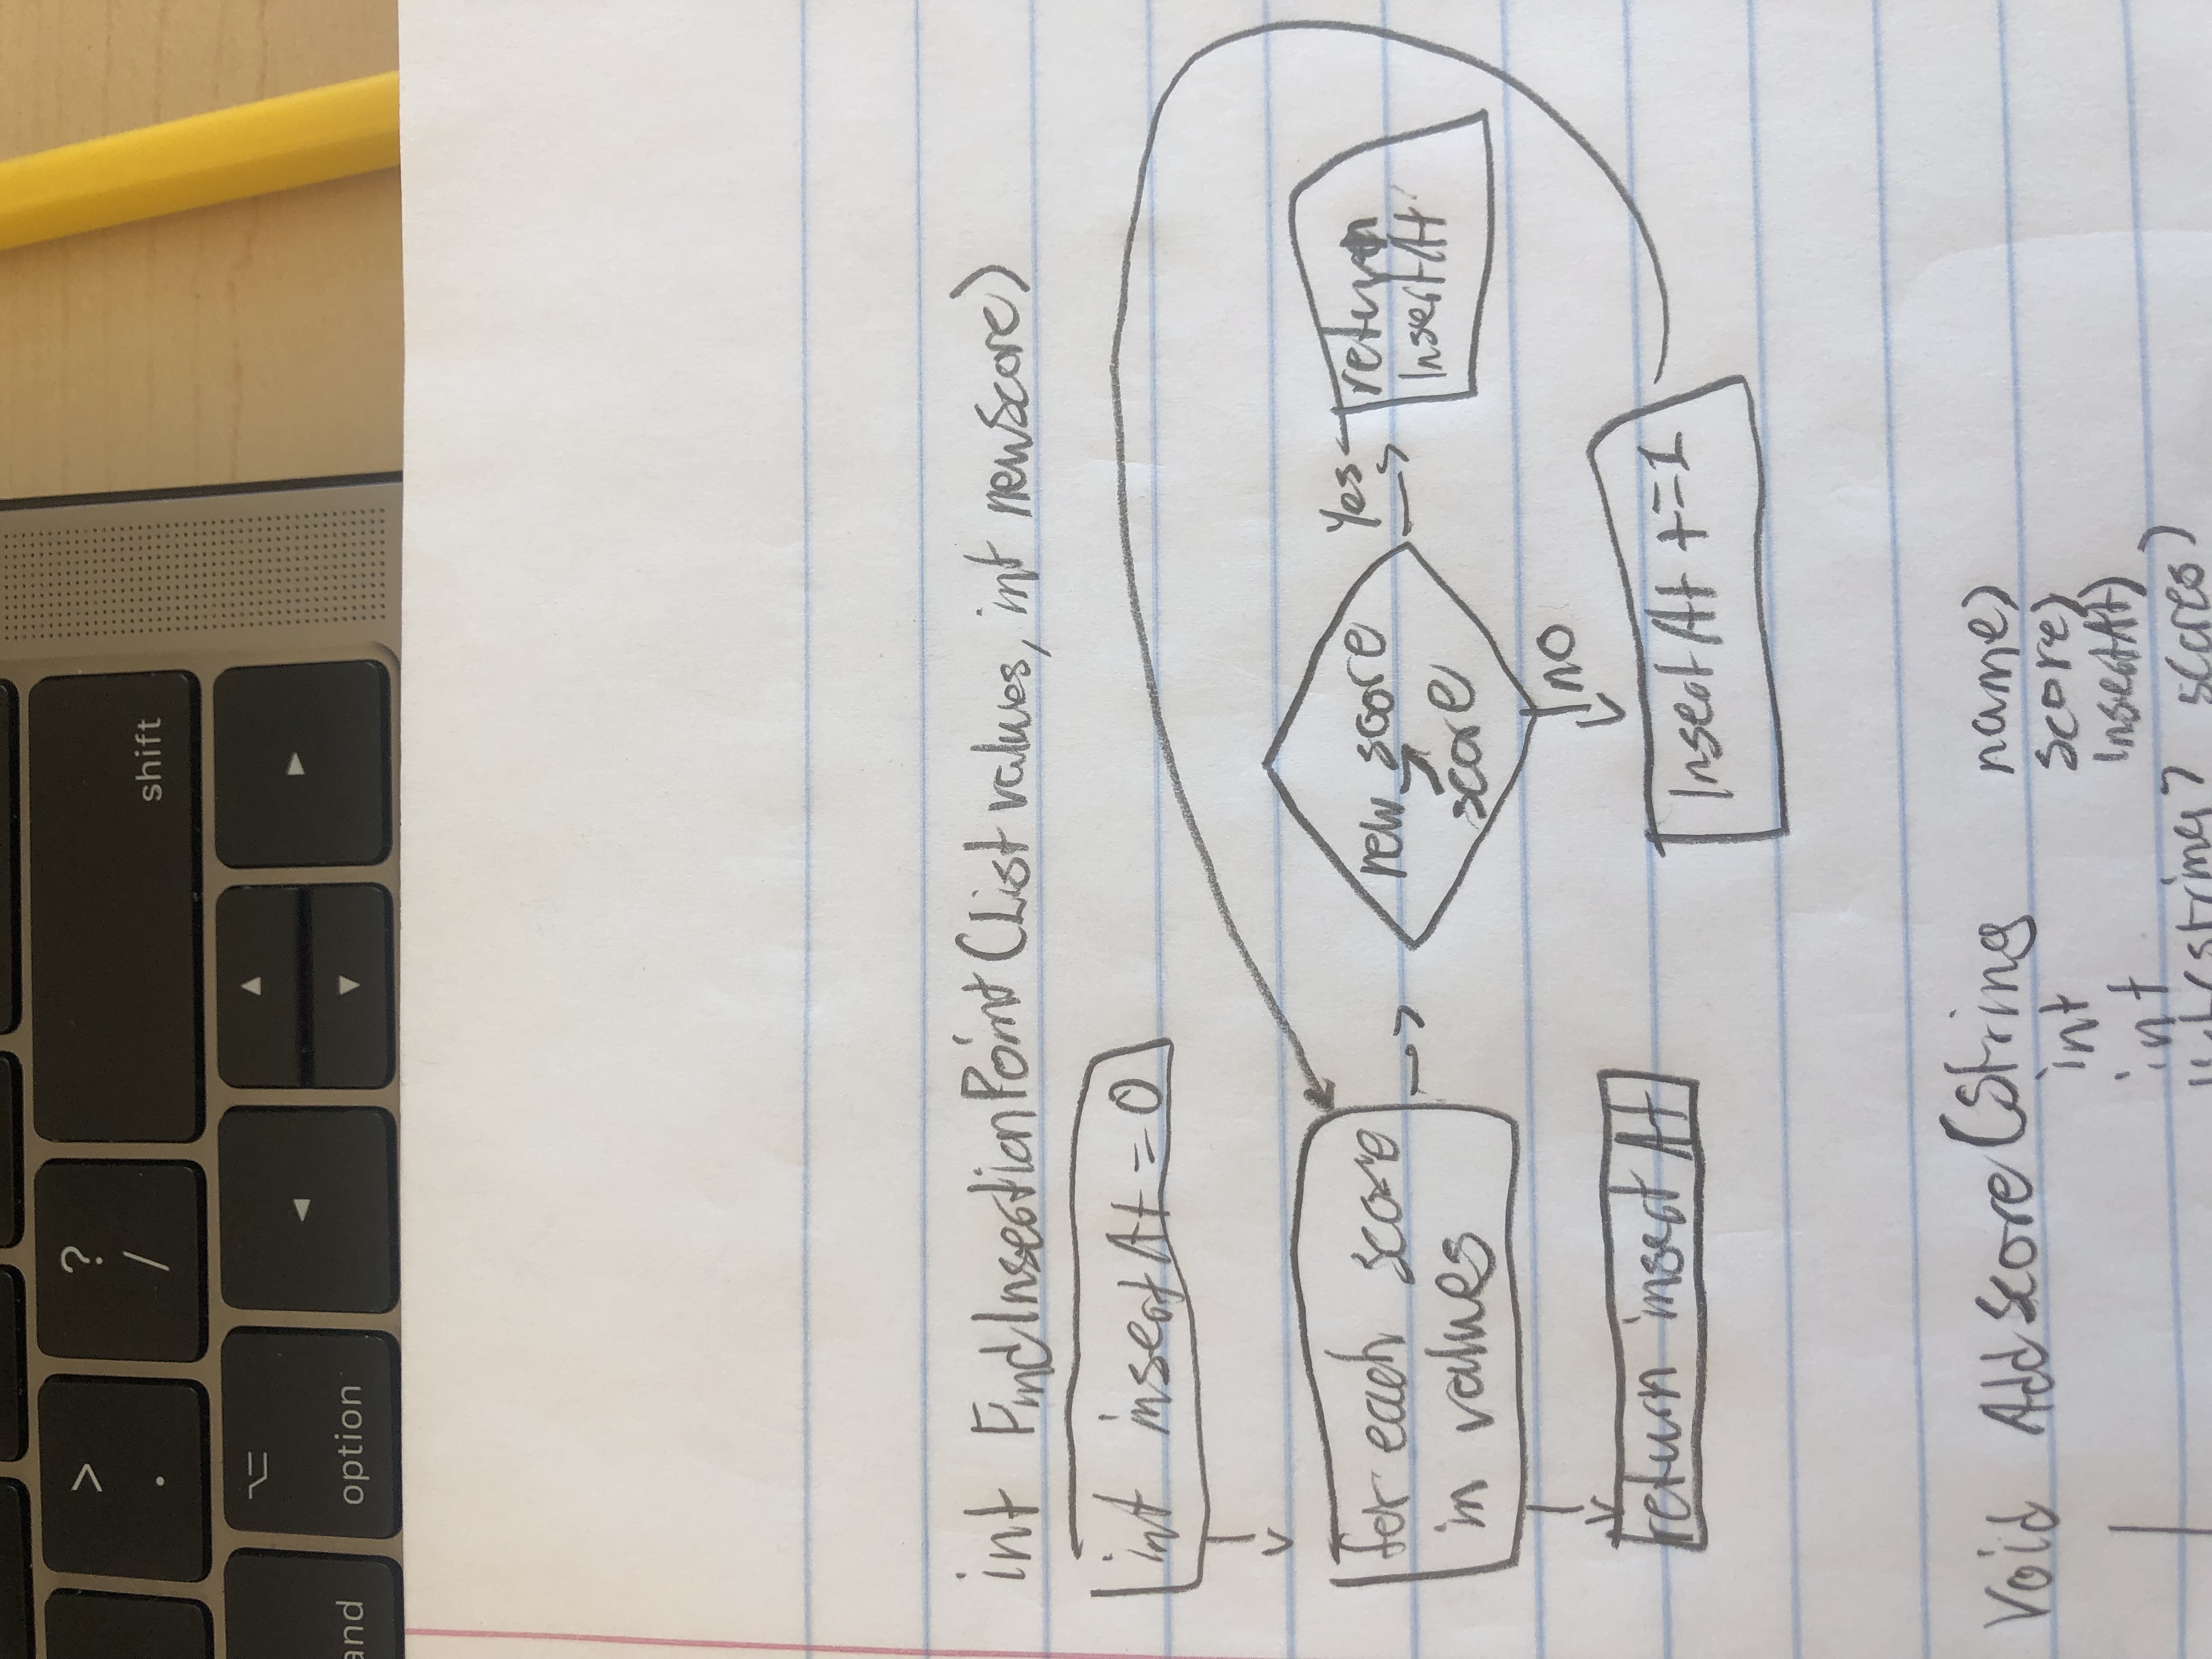 >
.
?
/
shift
and
option
int FindInsertionPoint(List values, int newScore)
int insertAt = 0
for each score
in values
new score
>
score
Yes
return
InsertAt
no
return insertAt
InsertAt +=1
Void AddScore(String name)
int score)
int InsertAt)
scores)